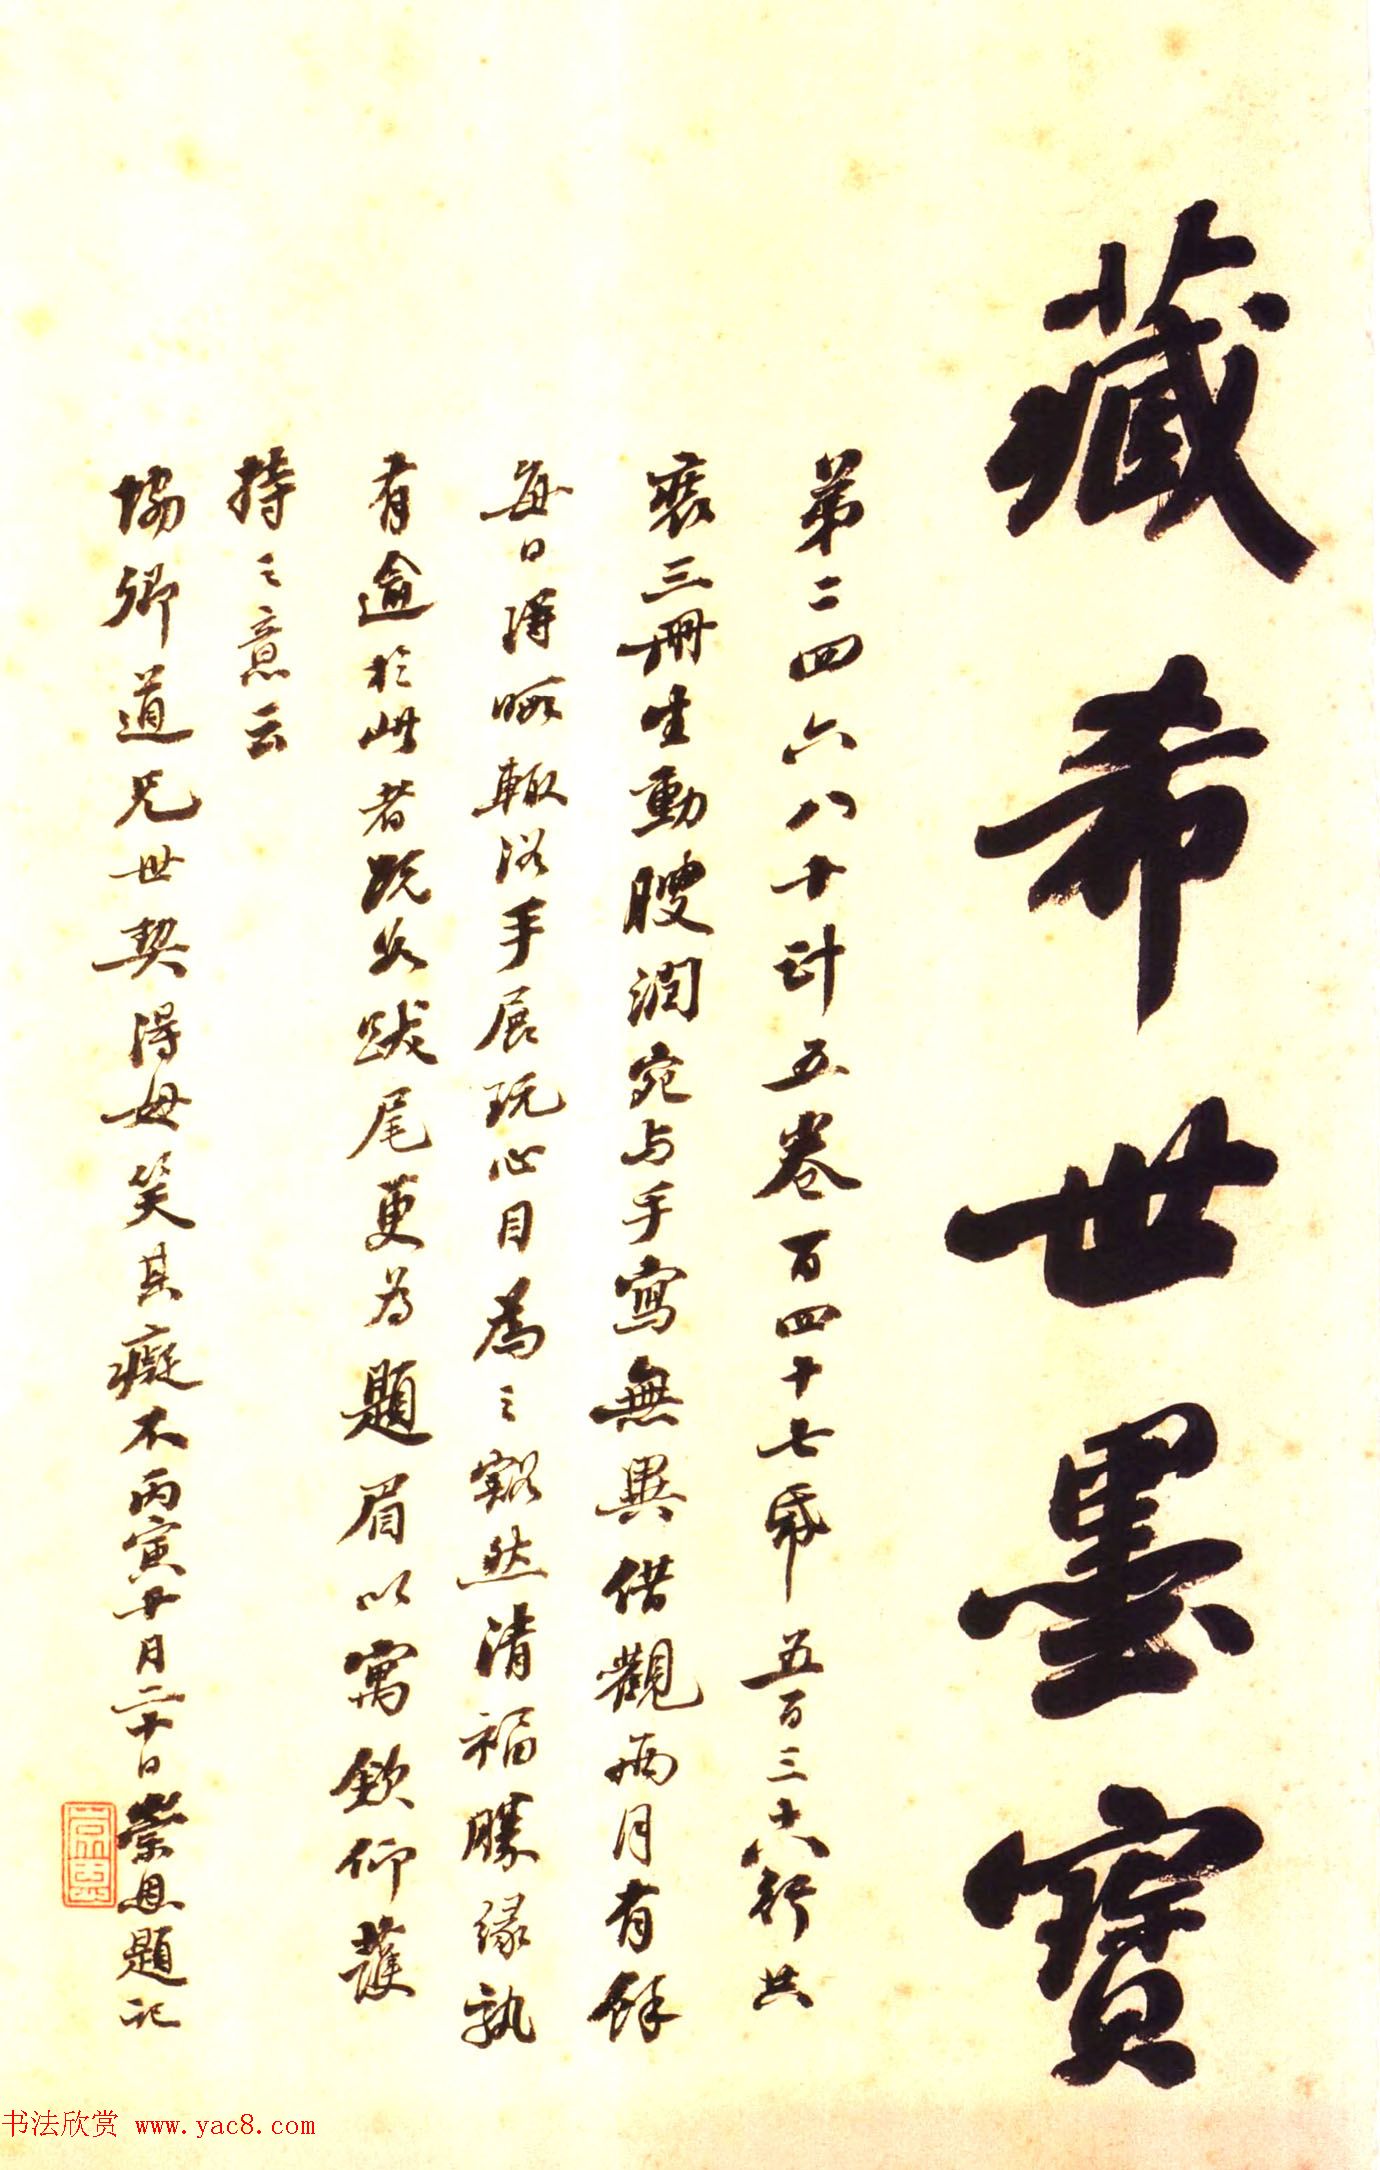 藏希世墨寶
第二四六八十計五卷百四十七帋五百三十六行共
裘三冊生動腴潤宛与手寫無異借觀兩月有餘
每日得暇輒浴手展玩心目為之豁然清福勝緣孰
有逾於此者既為跋尾更為題眉以寓欽仰護
持之意云
協卿道兄世契得毋笑其癡不丙寅十月二十日崇恩題記
崇恩
书法欣赏 www.yac8.com